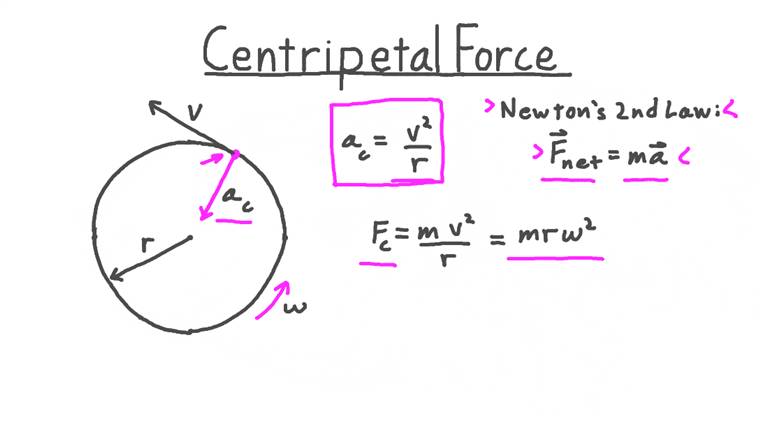 Centripetal Force
v
a_c
r
w
a_c = v²/r
>Newton's 2nd Law:<
>F⃗_net = ma⃗<
F_c = m v²/r = mrw²